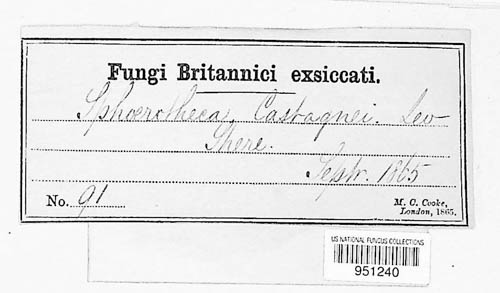 Fungi Britannici exsiccati.
Sphœrotheca. Castagnei. Lev
Shere.
Septr. 1865
No. 91
M. C. Cooke,
London, 1865.
US NATIONAL FUNGUS COLLECTIONS
951240